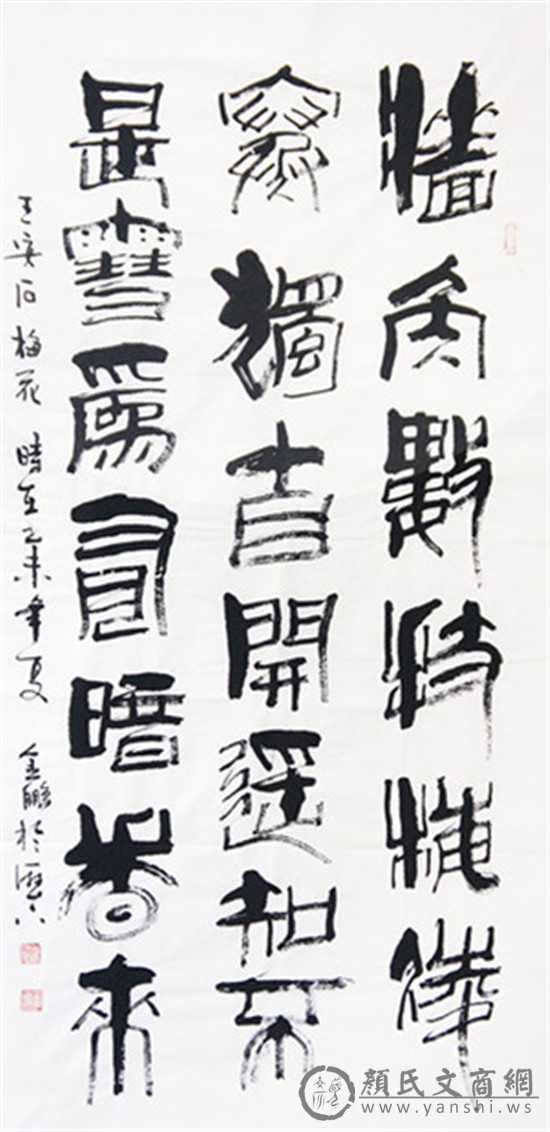 牆角數枝梅凌
寒獨自開遥知不
是雪爲有暗香來
王安石梅花 時在乙未年夏 金鵬於歷下
顔氏文商網
www.yanshi.ws